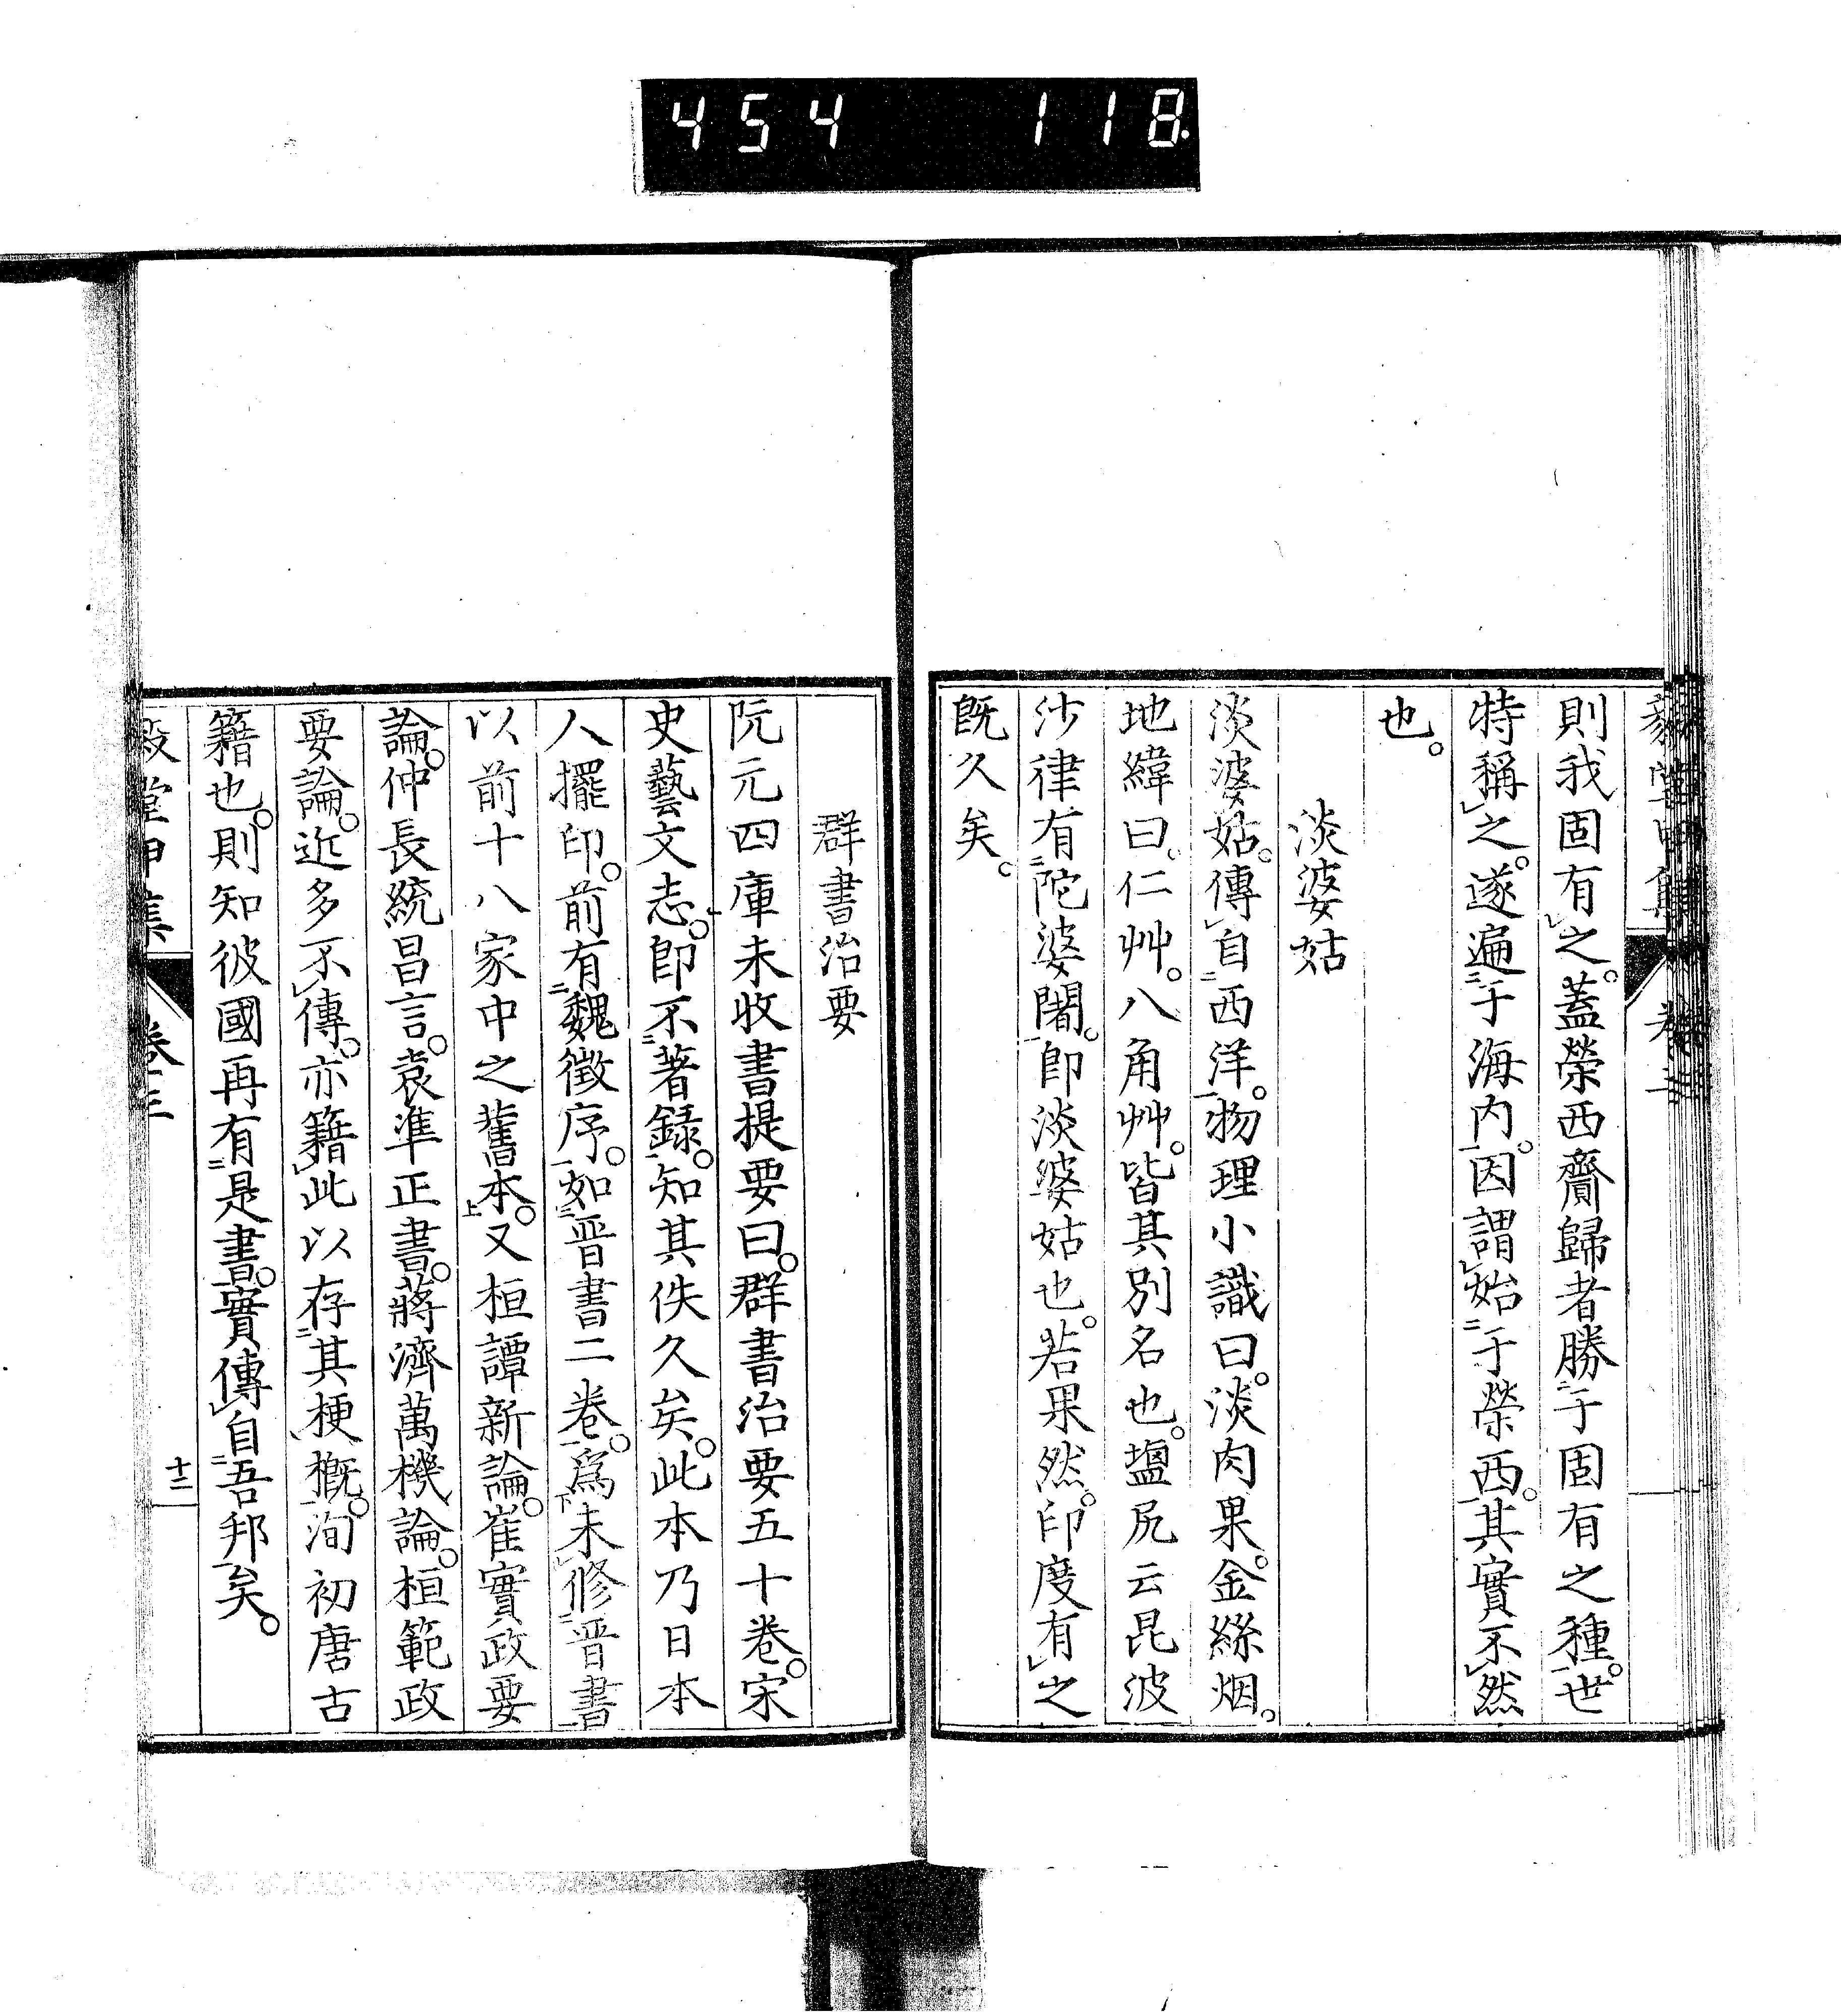 454 118
則我固有之。蓋榮西齎歸者勝于固有之種。世
特稱之。遂遍于海内。因謂始于榮西。其實不然
也。
淡婆姑
淡婆姑。傳自西洋。物理小識曰。淡肉果。金絲烟。
地緯曰。仁艸。八角艸。皆其別名也。盬尻云昆波
沙律有陀婆闍。卽淡婆姑也。若果然。印度有之
既久矣。
群書治要
阮元四庫未收書提要曰。群書治要五十卷。宋
史藝文志。卽不著録。知其佚久矣。此本乃日本
人擺印。前有魏徵序。如晋書二卷。爲未修晋書
以前十八家中之舊本。又桓譚新論。崔實政要
論。仲長統昌言。袁準正書。蔣濟萬機論。桓範政
要論。近多不傳。亦籍此以存其梗概。洵初唐古
籍也。則知彼國再有是書。實傳自吾邦矣。
卷三
十二